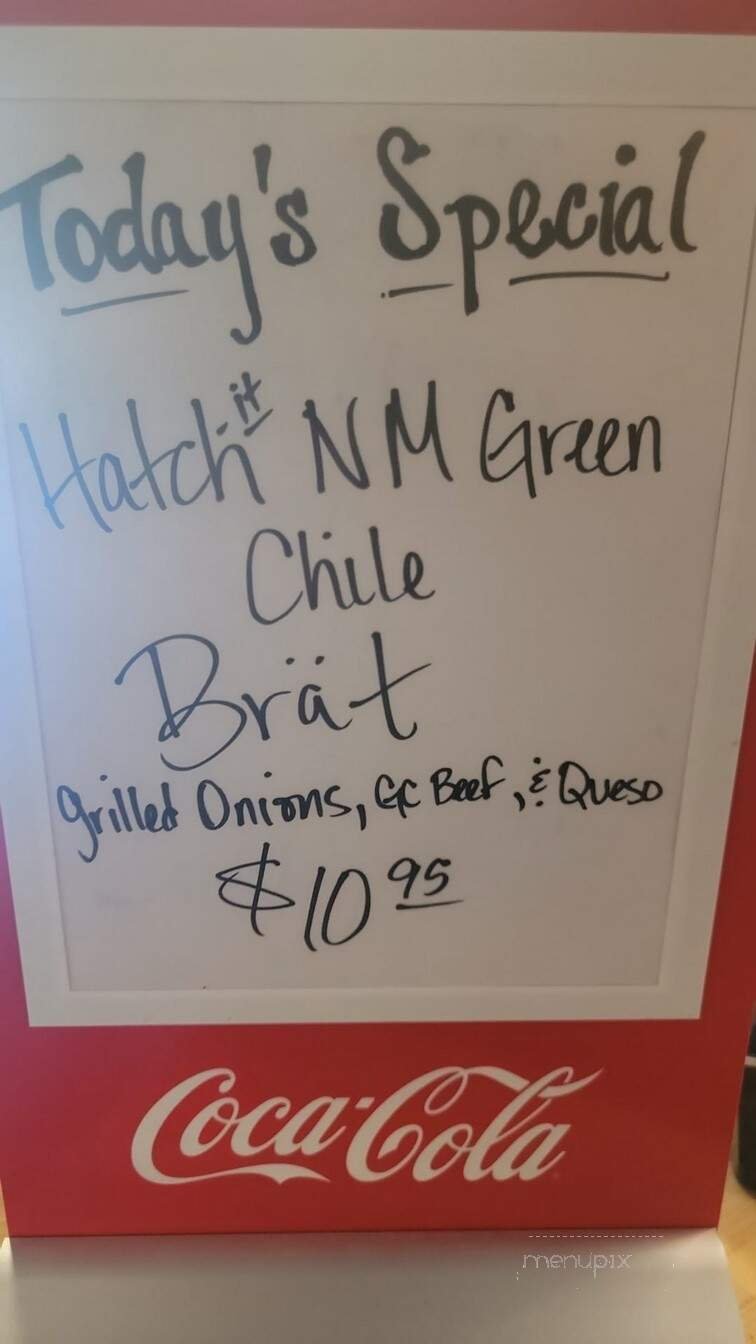 Today's Special
Hatch it NM Green
Chile
Brät
Grilled Onions, GC Beef, & Queso
$10 95
Coca-Cola
menupix